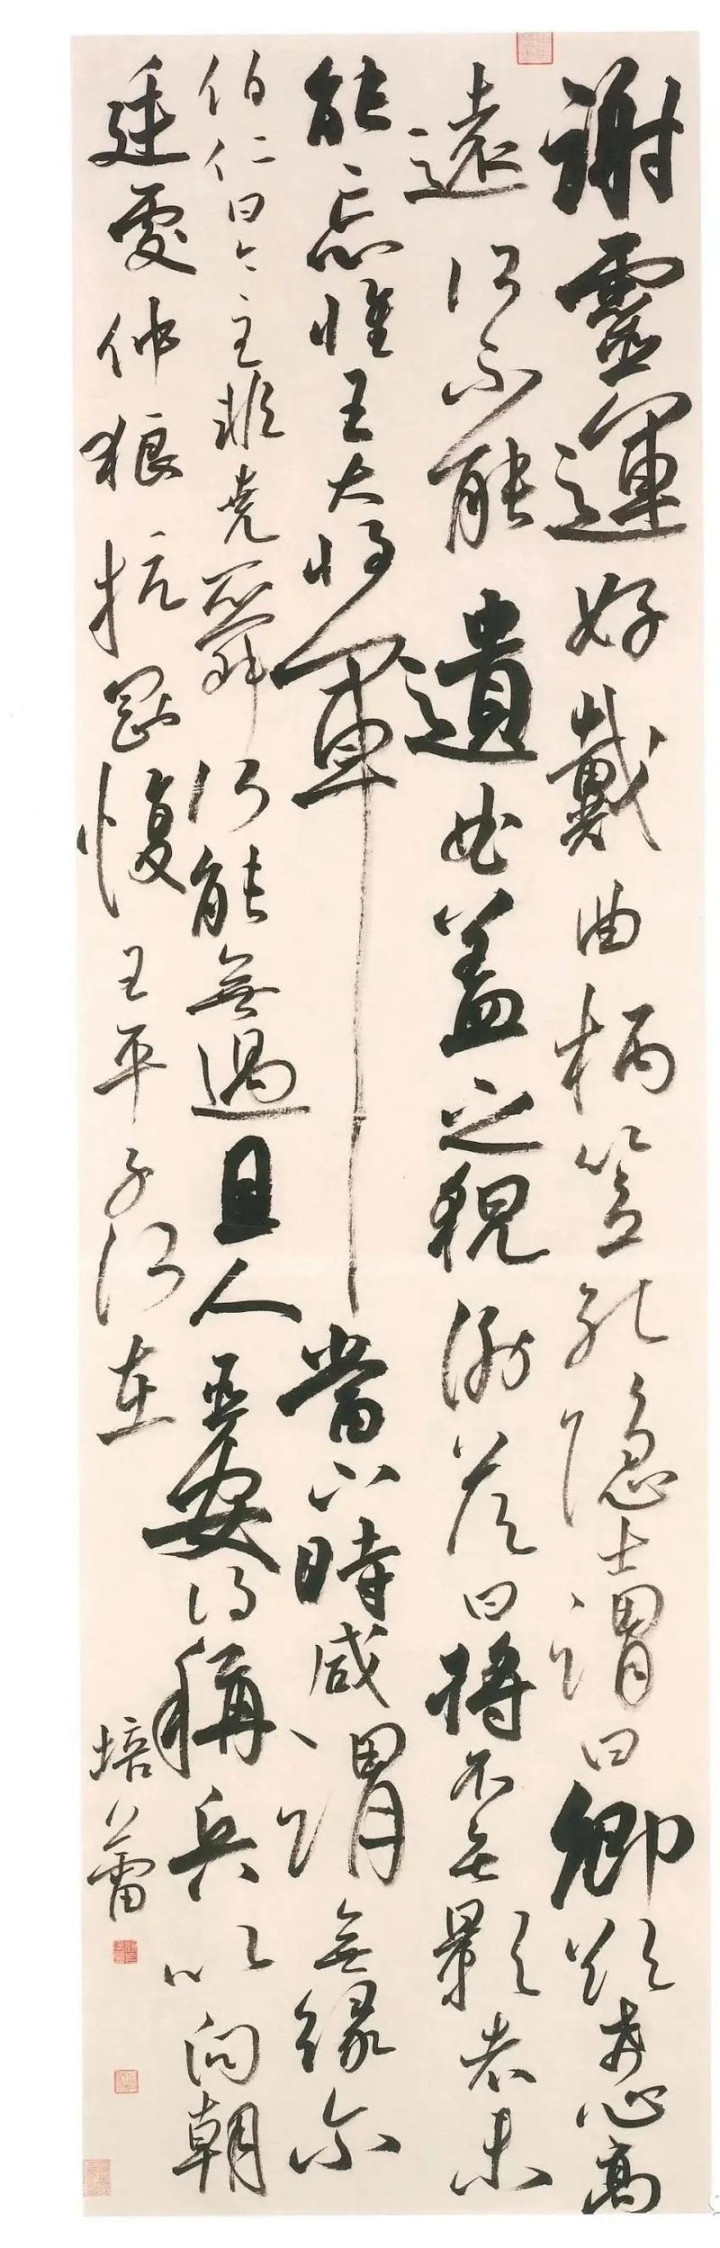 謝靈運好戴曲柄笠孔隱士謂曰卿欲希心高
遠何不能遺曲蓋之貌謝答曰將不畏影者未
能忘懷王大將軍當下時咸謂無緣爾
伯仁曰今主非堯舜何能無過且人臣安得稱兵以向朝
廷處仲狼抗剛愎王平子何在
培蕾